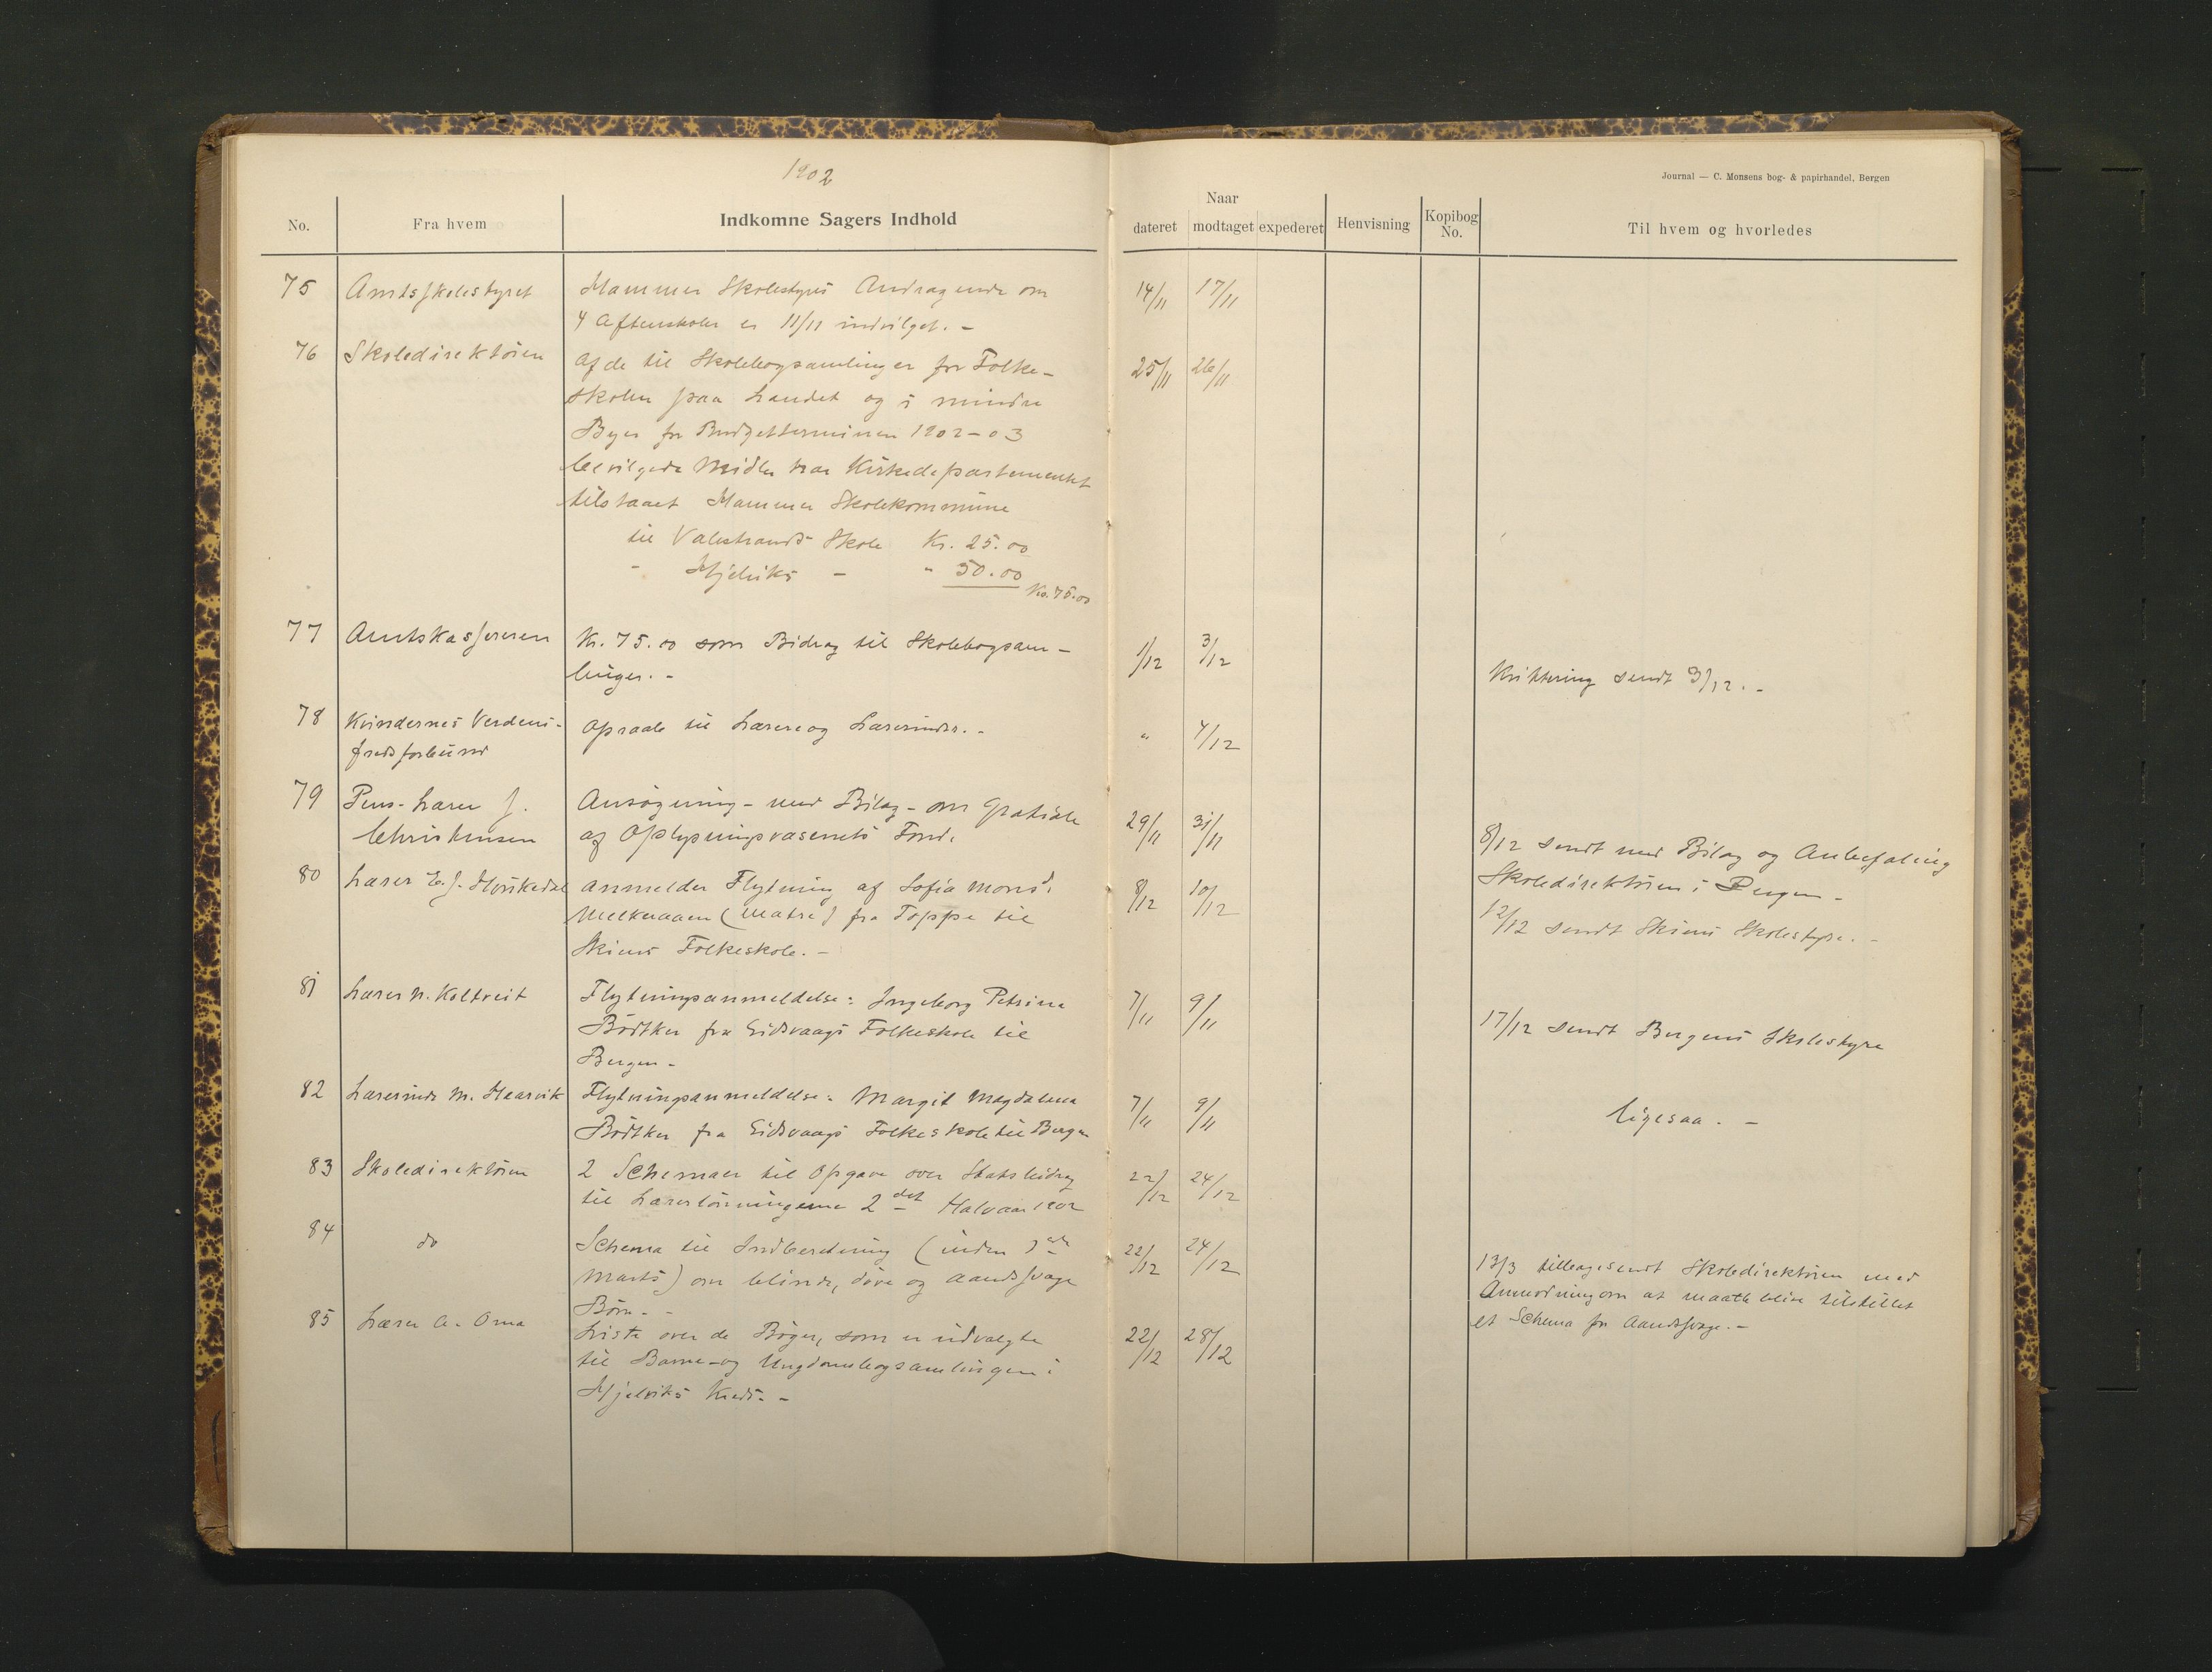 1902
Journal — C. Monsens bog- & papirhandel, Bergen
No.
Fra hvem
Indkomne Sagers Indhold
Naar
dateret
modtaget
expederet
Henvisning
Kopibog No.
Til hvem og hvorledes
75 Amtsskolestyret Hammer Skolestyres Andragende om 14/11 17/11
4 Aftenskoler er 11/11 indvilget. -
76 Skoledirektören Af de til Skolebogsamlinger for Folke- 25/11 26/11
skolen paa Landet og i mindre
Byer for Budgetterminen 1902-03
bevilgede Midler har Kirkedepartementet
tilstaaet Hammer Skolekommune
til Valestrands Skole Kr. 25.00
- Hjelviks - " 50.00
Kr. 75.00
77 Amtskassereren Kr. 75.00 som Bidrag til Skolebogsam- 1/12 3/12
linger. - Kvittering sendt 3/12. -
78 Kvindernes Verdens- Opraab til Lærere og Lærerinder. - " 4/12
fredsforbund
79 Pens. Lærer J. Ansögning - med Bilag - om Gratiale 29/11 31/11
Christensen af Oplysningsvæsenets Fond. 8/12 sendt med Bilag og Anbefaling
Skoledirektören i Bergen -
80 Lærer E. J. Anmelder Flytning af Sofia Monsd. 8/12 10/12
(Matre) fra Toppe til 12/12 sendt Skiens Skolestyre. -
Skiens Folkeskole. -
81 Lærer N. Koltveit Flytningsanmeldelse: Ingeborg Petrine 7/11 9/11
Bödtker fra Eidsvaags Folkeskole til 17/12 sendt Bergens Skolestyre
Bergen -
82 Lærerinde M. Haarvik Flytningsanmeldelse: Margit Magdalena 7/11 9/11 ligesaa. -
Bödtker fra Eidsvaags Folkeskole til Bergen
83 Skoledirektören 2 Schemaer til Opgave over Statsbidrag 22/12 24/12
til Lærerlönningerne 2det Halvaar 1902
84 do Schema til Indberetning (inden 22/12 24/12
Marts) om blinde, döve og aandssvage 13/3 tilbagesendt Skoledirektören med
Börn. - Anmodning om at maatte blive tilstillet
et Schema for Aandssvage. -
85 Lærer A. Oma Liste over de Böger, som er udvalgte 22/12 28/12
til Barne- og Ungdomsbogsamlingen i
Hjelviks Kreds. -